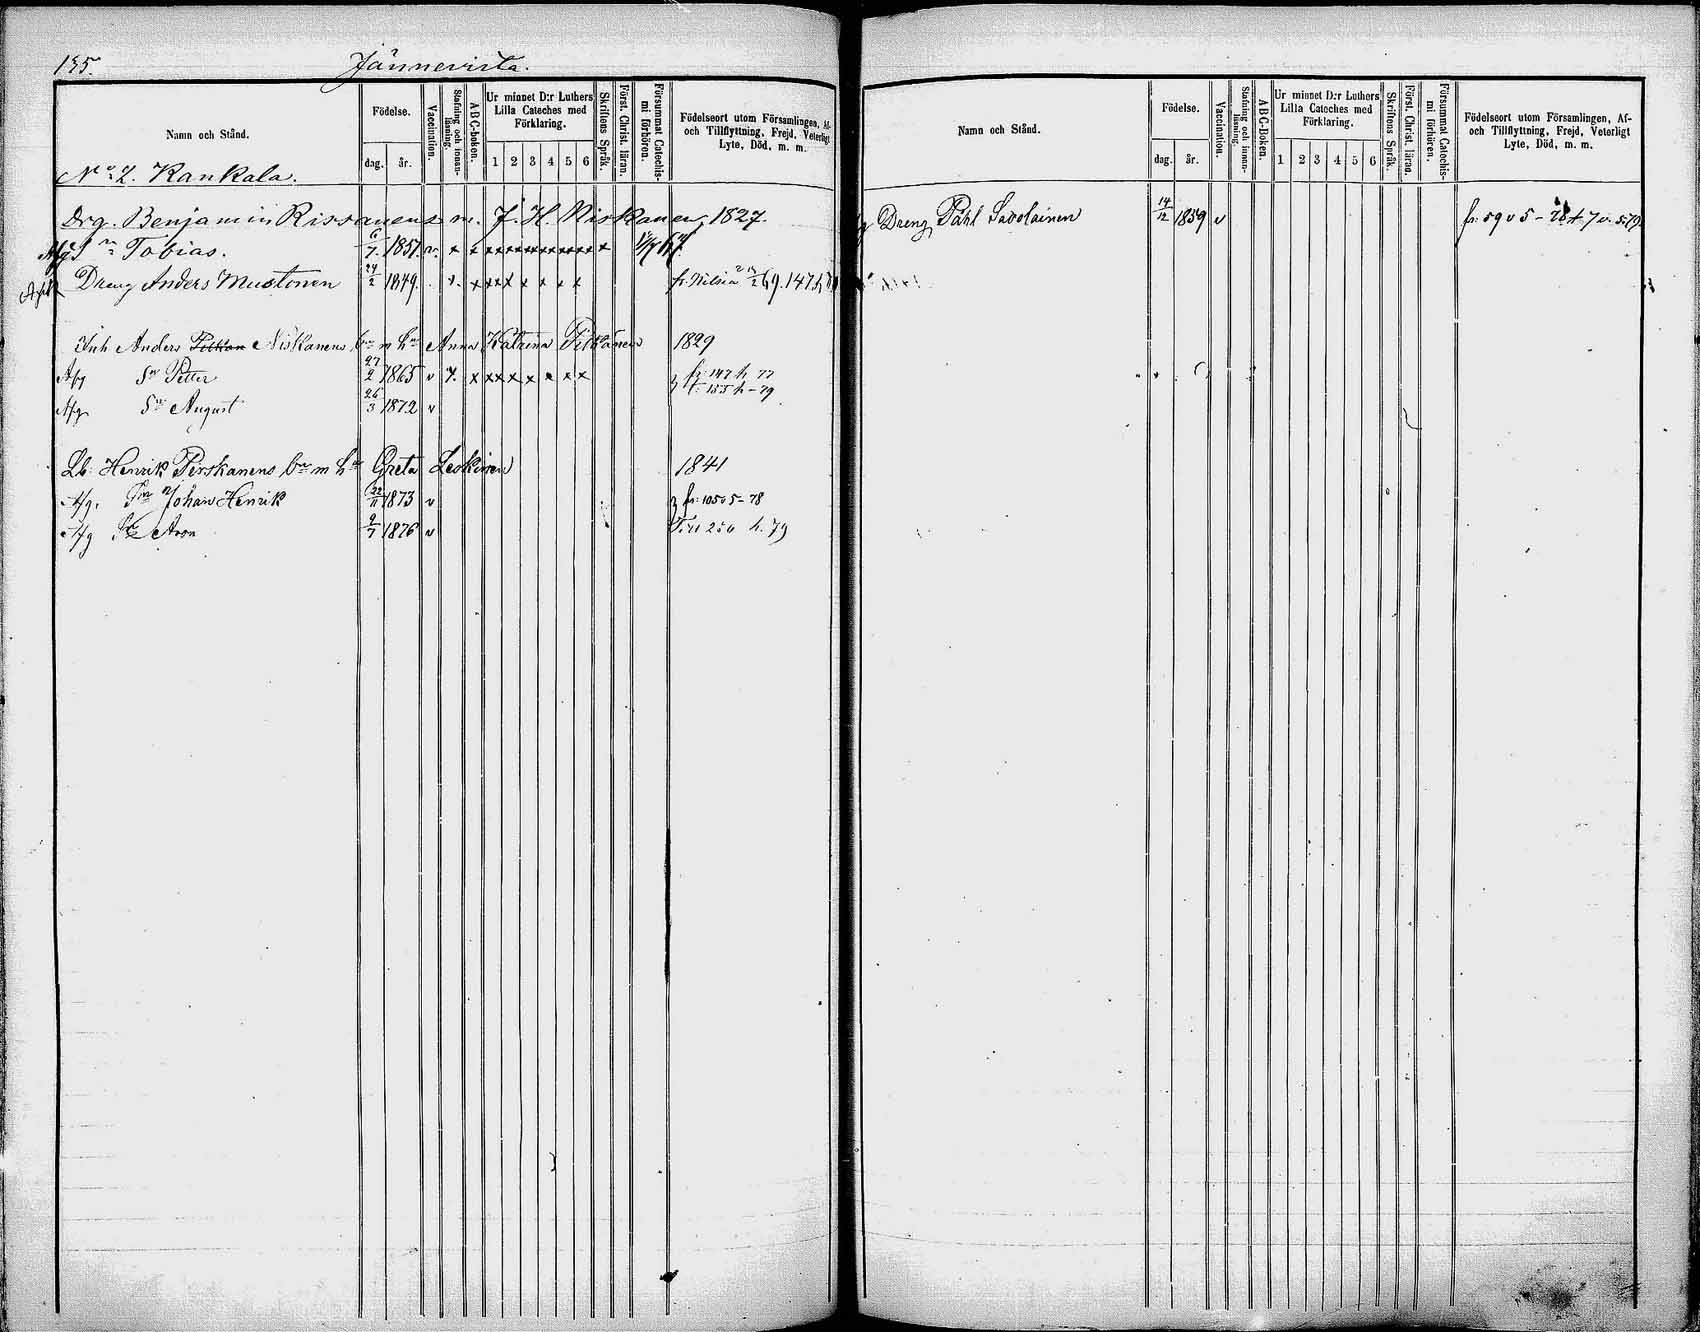 135. Jännevirta.
Namn och Stånd. Födelse. dag. år. Vaccination. Stafning och innan-läsning. ABC-boken. Ur minnet D:r Luthers Lilla Cateches med Förklaring. 1 2 3 4 5 6 Skriftens Språk. Först. Christ. läran. Försummat Catechis-mi förhören. Födelseort utom Församlingen, Af- och Tillflyttning, Frejd, Veterligt Lyte, Död, m. m.
No 2. Kankala.
Drg. Benjamin Rissanens m. J. H. Niskanen, 1827.
Afg Sn Tobias. 6/7 1857. v. x x xxxxxxxxxxx x
Dreng Anders Mustonen 24/2 1849. x x xxx x x x x fr. Nilsiä 69. 147
Inh Anders Pitkän Niskanens m hu Anna Katrina Pitkänen 1829
Afg Sn Petter 27/2 1865 v x x xxx x x x x fr. 147 h 77
t. 155 h - 79
Afg Sn August 26/3 1872 v
Lb. Henrik Pirskanens bn m hu Greta Leskinen 1841
Afg. Sn Johan Henrik 22/11 1873 v fr. 105 v 5 - 78
Afg Sn Aron 9/7 1876 v Till 250 h. 79
Namn och Stånd. Födelse. dag. år. Vaccination. Stafning och innan-läsning. ABC-Boken. Ur minnet D:r Luthers Lilla Cateches med Förklaring. 1 2 3 4 5 6 Skriftens Språk. Först. Christ. läran. Försummat Catechis-mi förhören. Födelseort utom Församlingen, Af- och Tillflyttning, Frejd, Veterligt Lyte, Död, m. m.
Dreng Påhl Savolainen 14/12 1859 v fr. 59 v 5 - 78 t 7 v. 5. 79